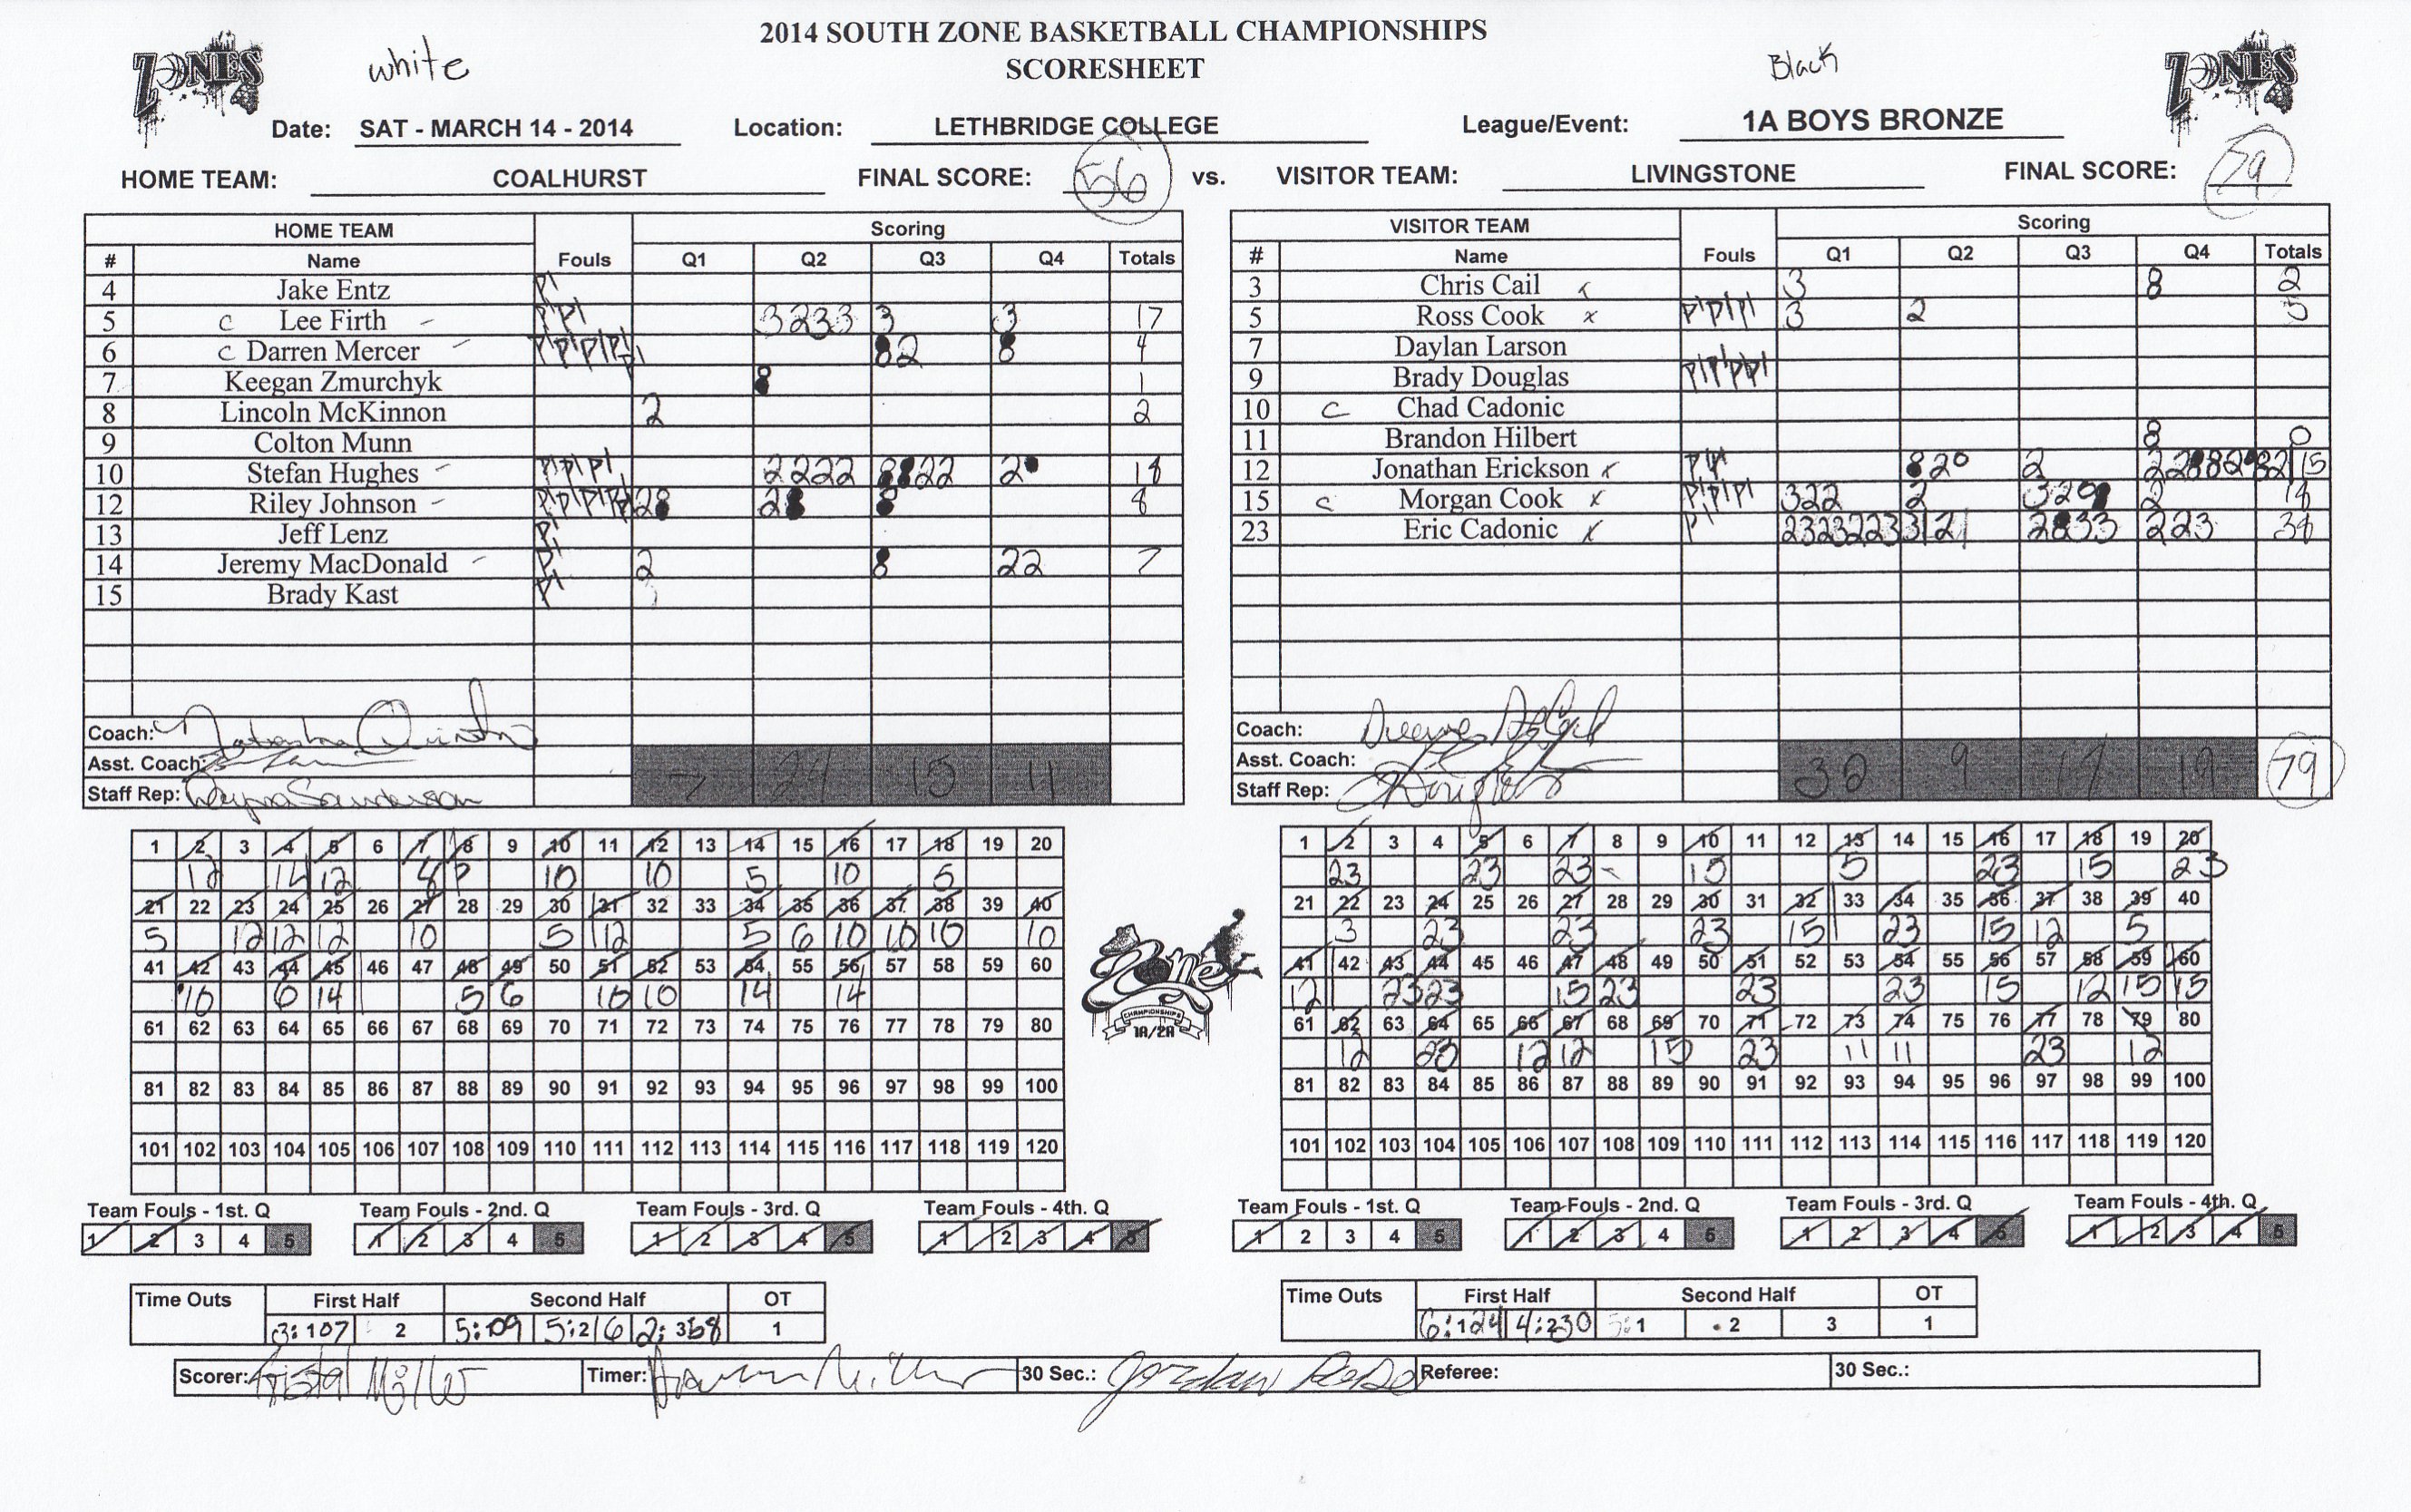 2014 SOUTH ZONE BASKETBALL CHAMPIONSHIPS
SCORESHEET
ZONES white Black ZONES
Date: SAT - MARCH 14 - 2014 Location: LETHBRIDGE COLLEGE League/Event: 1A BOYS BRONZE
HOME TEAM: COALHURST FINAL SCORE: 56 vs. VISITOR TEAM: LIVINGSTONE FINAL SCORE: 79
HOME TEAM Fouls Scoring
# Name Q1 Q2 Q3 Q4 Totals
4 Jake Entz
5 C Lee Firth 3233 3 3 17
6 C Darren Mercer 4
7 Keegan Zmurchyk 1
8 Lincoln McKinnon 2 2
9 Colton Munn
10 Stefan Hughes 2222 18
12 Riley Johnson 8
13 Jeff Lenz
14 Jeremy MacDonald 2 8 22 7
15 Brady Kast
Coach:
Asst. Coach:
Staff Rep:
7 24 15 11
VISITOR TEAM Fouls Scoring
# Name Q1 Q2 Q3 Q4 Totals
3 Chris Cail x 3 8 2
5 Ross Cook x 3 2 5
7 Daylan Larson
9 Brady Douglas
10 C Chad Cadonic
11 Brandon Hilbert 8 0
12 Jonathan Erickson x 2 15
15 C Morgan Cook x 322 2 2 18
23 Eric Cadonic x 2833 223 38
Coach:
Asst. Coach:
Staff Rep:
32 9 19 79
1 2 3 4 5 6 7 8 9 10 11 12 13 14 15 16 17 18 19 20
12 14 12 8 10 10 5 10 5
21 22 23 24 25 26 27 28 29 30 31 32 33 34 35 36 37 38 39 40
5 12 12 12 10 5 12 5 6 10 10 10 10
41 42 43 44 45 46 47 48 49 50 51 52 53 54 55 56 57 58 59 60
10 6 14 5 6 10 10 14 14
61 62 63 64 65 66 67 68 69 70 71 72 73 74 75 76 77 78 79 80
81 82 83 84 85 86 87 88 89 90 91 92 93 94 95 96 97 98 99 100
101 102 103 104 105 106 107 108 109 110 111 112 113 114 115 116 117 118 119 120
Zone
CHAMPIONSHIPS
1A/2A
1 2 3 4 5 6 7 8 9 10 11 12 13 14 15 16 17 18 19 20
23 23 23 15 5 23 15 23
21 22 23 24 25 26 27 28 29 30 31 32 33 34 35 36 37 38 39 40
3 23 23 23 15 23 15 12 5
41 42 43 44 45 46 47 48 49 50 51 52 53 54 55 56 57 58 59 60
12 23 23 15 23 23 23 15 12 15 15
61 62 63 64 65 66 67 68 69 70 71 72 73 74 75 76 77 78 79 80
12 23 12 12 15 23 11 11 23 12
81 82 83 84 85 86 87 88 89 90 91 92 93 94 95 96 97 98 99 100
101 102 103 104 105 106 107 108 109 110 111 112 113 114 115 116 117 118 119 120
Team Fouls - 1st. Q Team Fouls - 2nd. Q Team Fouls - 3rd. Q Team Fouls - 4th. Q
1 2 3 4 5 1 2 3 4 5 1 2 3 4 5 1 2 3 4 5
Team Fouls - 1st. Q Team Fouls - 2nd. Q Team Fouls - 3rd. Q Team Fouls - 4th. Q
1 2 3 4 5 1 2 3 4 5 1 2 3 4 5 1 2 3 4 5
Time Outs First Half Second Half OT
2 1
Time Outs First Half Second Half OT
1 2 3 1
Scorer: Timer: 30 Sec.: Jordan Referee: 30 Sec.: